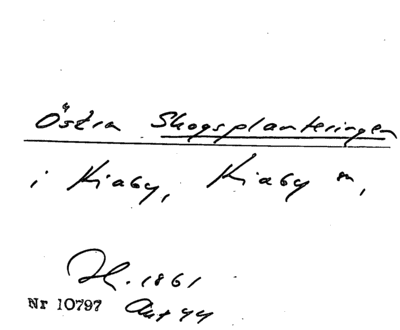 Östra Skogsplanteringen
i Kiaby, Kiaby sn,
Hl. 1861
Nr 10797